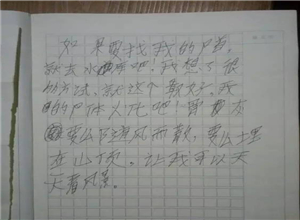 如果要找我的尸首,
就去水库吧!我想了很
的方法,就这个最好。我
的尸体火化吧!骨灰
要么随风而散,要么埋
在山顶。让我可以天
天看风景。